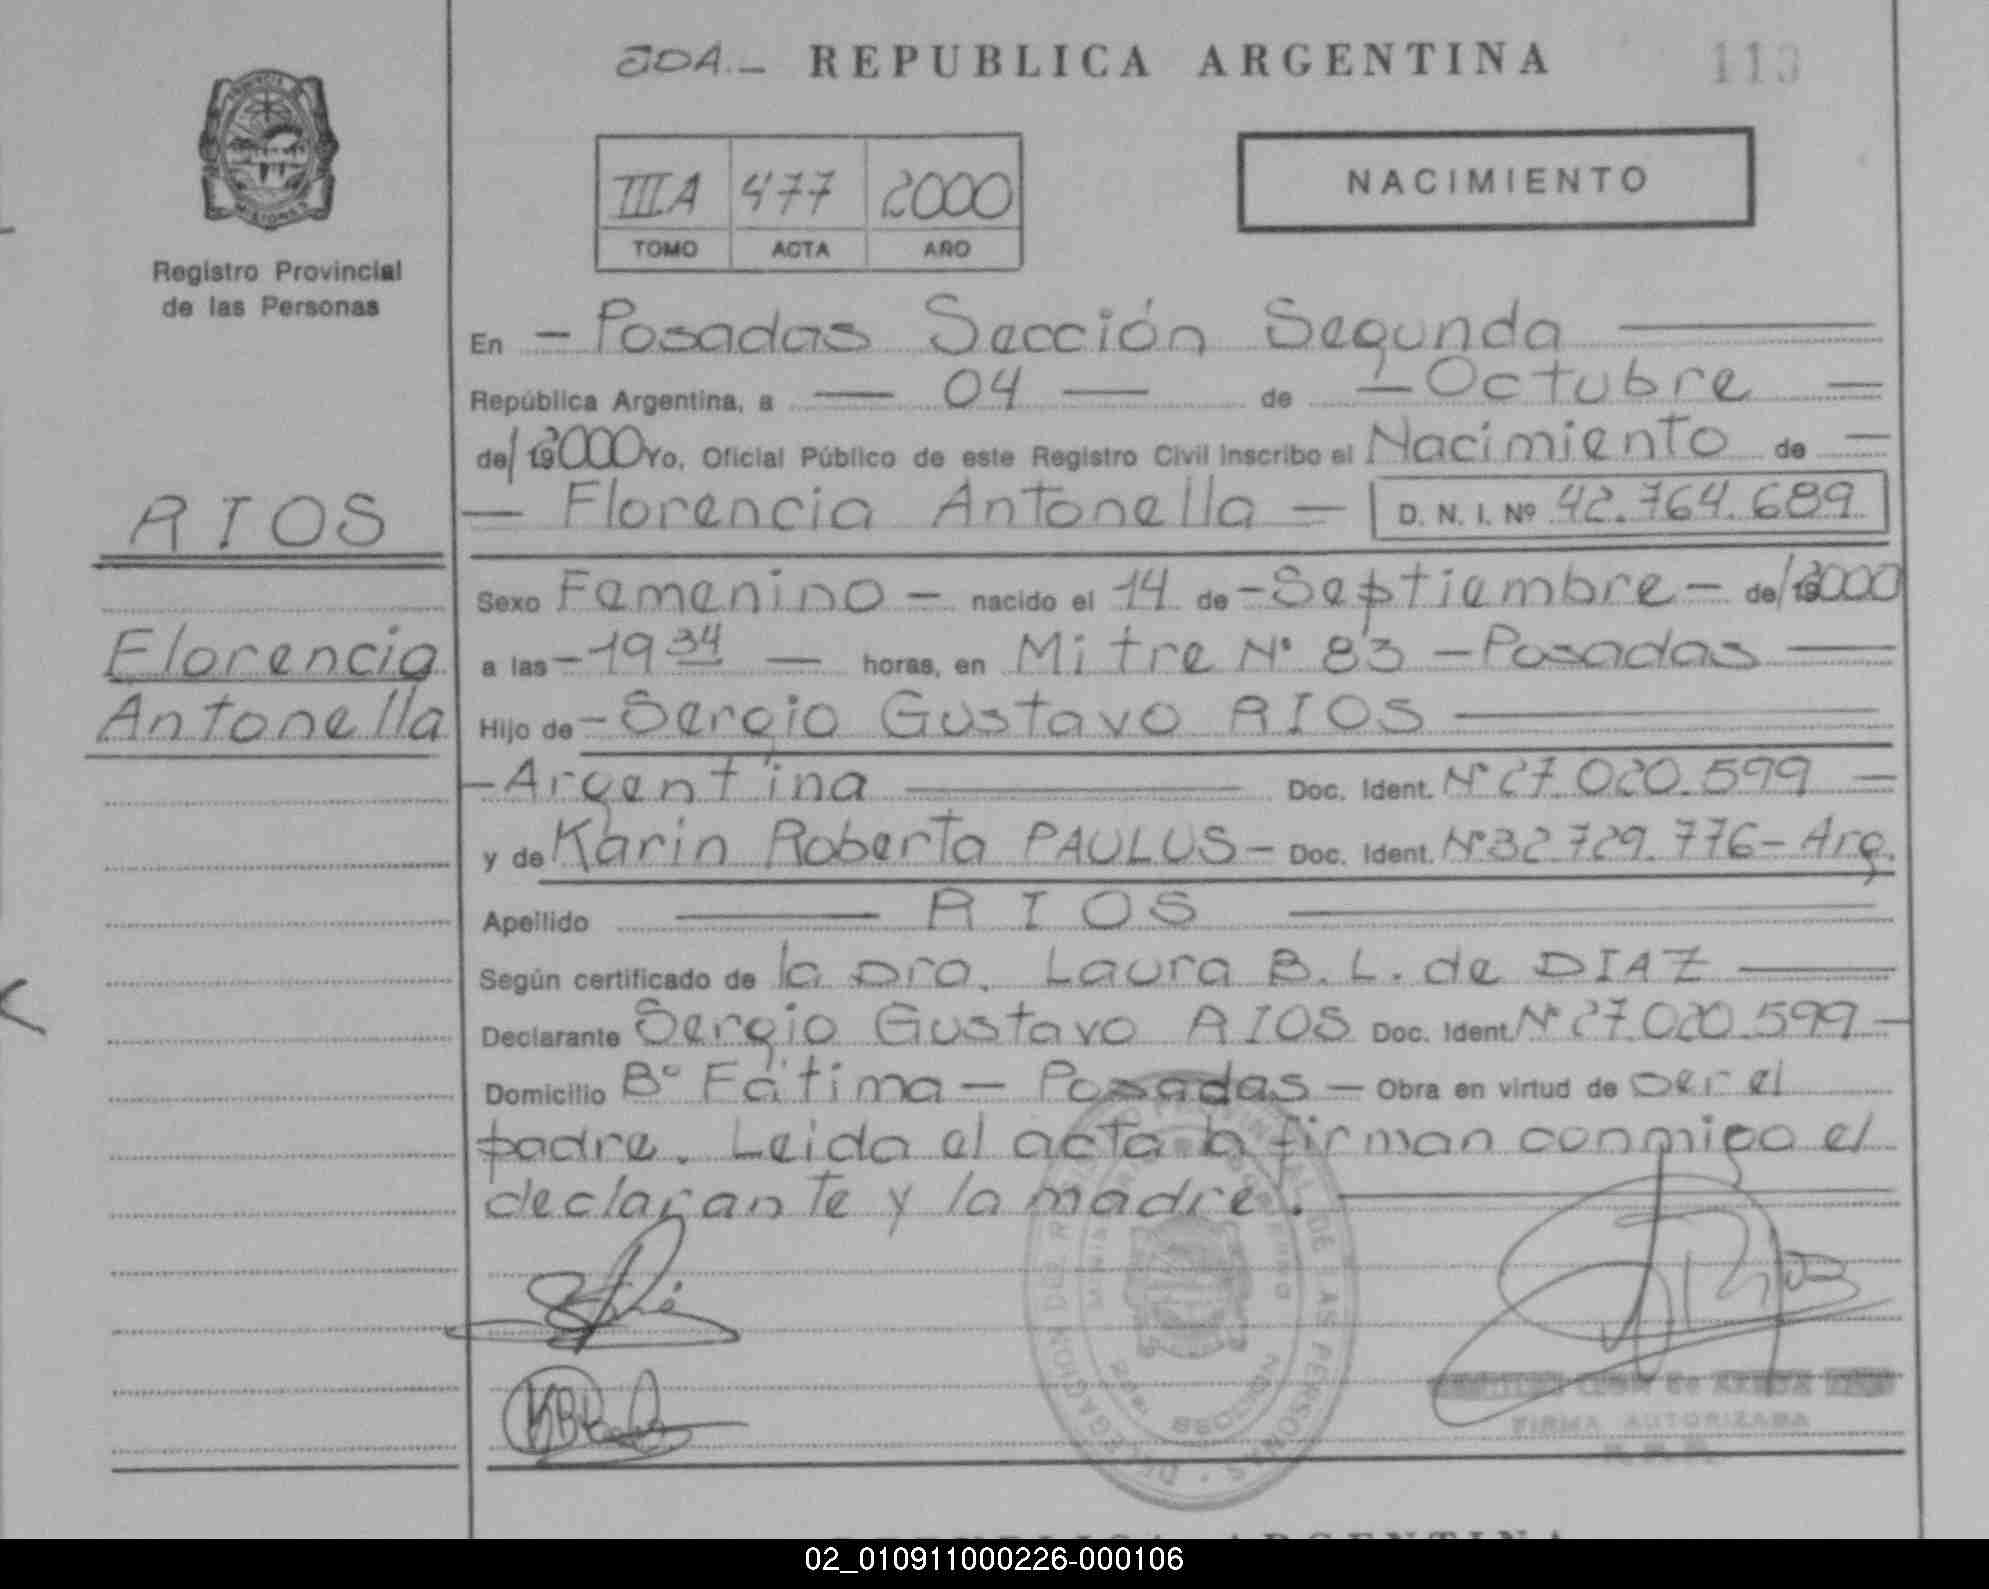 2DA.- REPUBLICA ARGENTINA 113
PROVINCIA
MISIONES
Registro Provincial
de las Personas
IIIA 477 2000
TOMO ACTA AÑO
NACIMIENTO
En - Posadas Sección Segunda
República Argentina, a — 04 — de - Octubre —
de/2000 Yo, Oficial Público de este Registro Civil inscribo el Nacimiento de —
RIOS
— Florencia Antonella — D. N. I. Nº 42.764.689
Sexo Femenino - nacido el 14 de - Septiembre - de/2000
Florencia
a las - 19 34 — horas, en Mitre Nº 83 - Posadas —
Antonella
Hijo de - Sergio Gustavo RIOS
- Argentina — Doc. Ident. Nº 27.020.599 —
y de Karin Roberta PAULUS - Doc. Ident. Nº 32.729.776 - Arg.
Apellido — RIOS —
Según certificado de la Dra. Laura B. L. de DIAZ —
Declarante Sergio Gustavo RIOS Doc. Ident. Nº 27.020.599 -
Domicilio Bº Fátima - Posadas - Obra en virtud de ser el
padre. Leida el acta la firman conmigo el
declarante y la madre.
FIRMA AUTORIZADA
REPUBLICA ARGENTINA
02_010911000226-000106